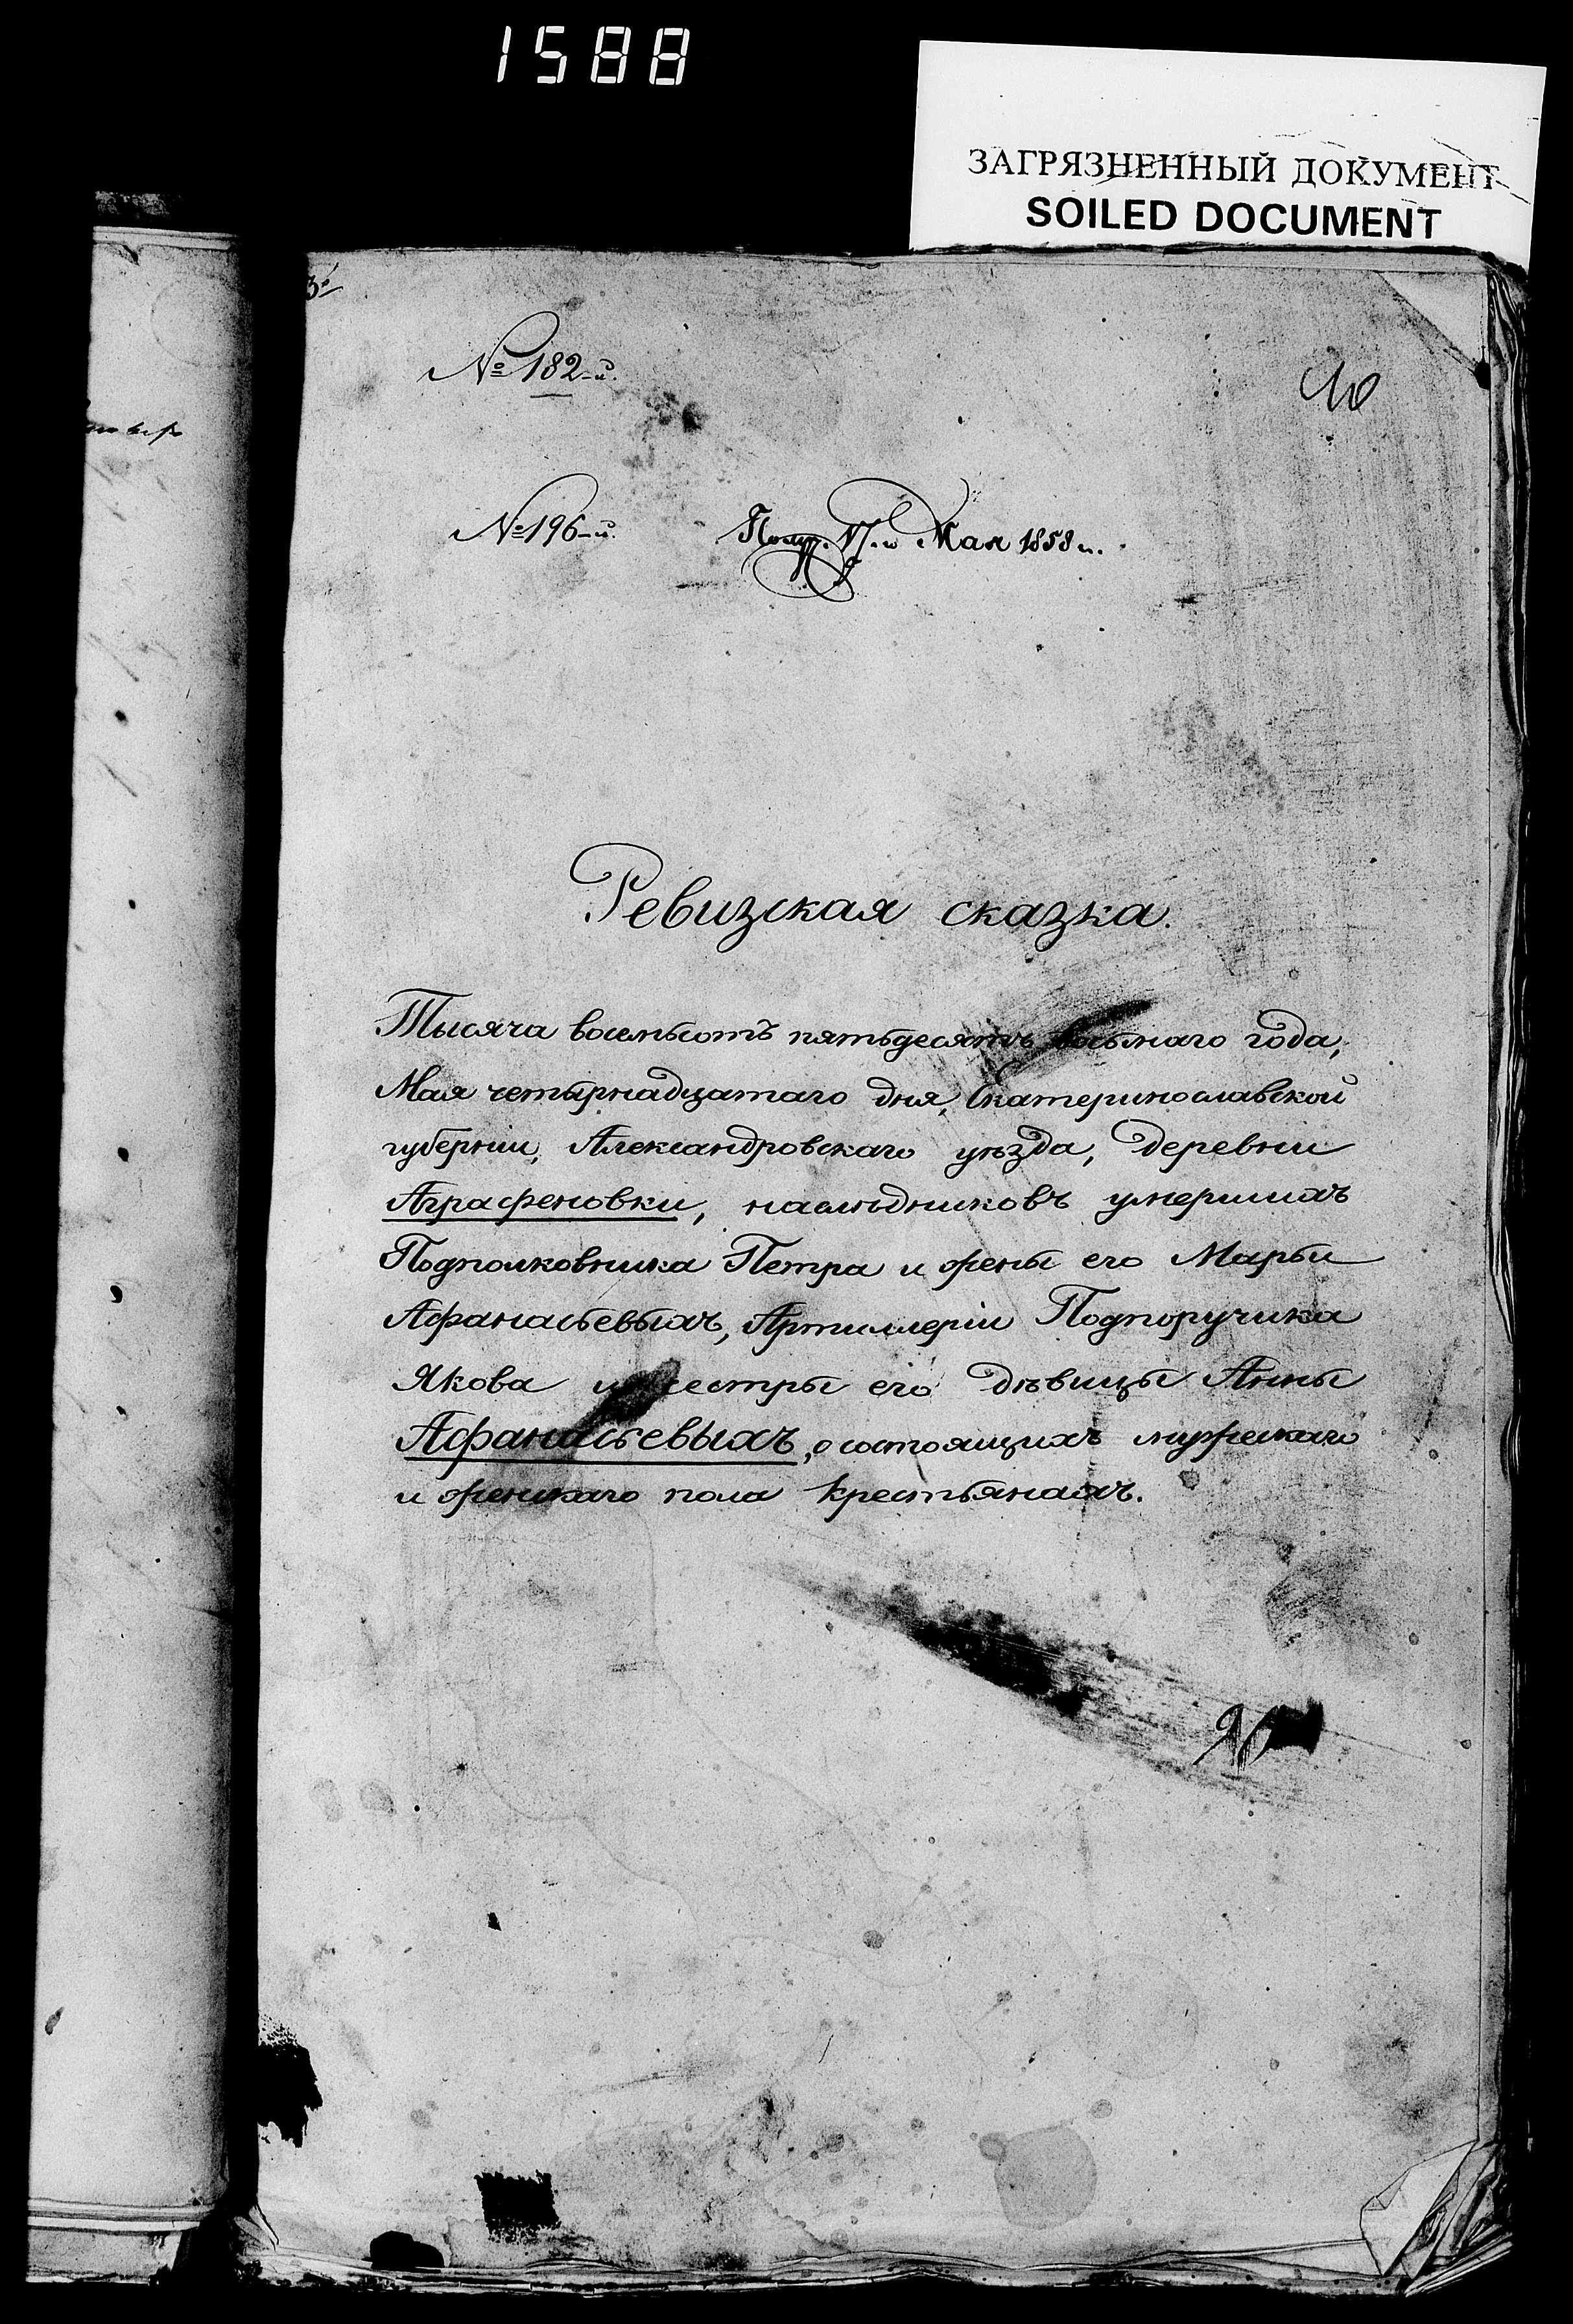 1588
ЗАГРЯЗНЕННЫЙ ДОКУМЕНТ
SOILED DOCUMENT
№ 182-й.
№ 196-й.
Получ. 17-го Мая 1858 г.
Ревизская сказка.
Тысяча восемьсотъ пятьдесятъ восьмаго года,
Мая четырнадцатаго дня, Екатеринославской
губерніи, Александровскаго уѣзда, деревни
Аграфеновки, наслѣдниковъ умершихъ
Подполковника Петра и жены его Марьи
Афанасьевыхъ, Артиллеріи Подпоручика
Якова и сестры его дѣвицы Анны
Афанасьевыхъ, о состоящихъ мужескаго
и женскаго пола крестьянахъ.